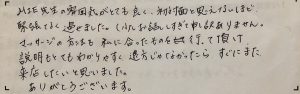 M.SE先生の雰囲気がとても良く、初対面と思えないほど、
緊張せず過せました。（ムダにお話ししすぎて申し訳ありません。
マッサージの方法も 私に合ったものを 頂け
説明もとてもわかりやすく 遠方じゃなかったら すぐにまた
来店したいと思いました。
ありがとうございます。